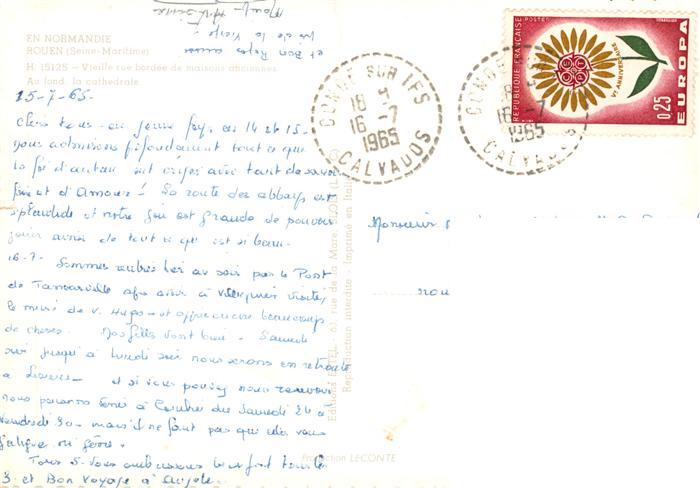 EN NORMANDIE
ROUEN (Seine-Maritime)
H. 15125 — Vieille rue bordée de maisons anciennes
Au fond, la cathédrale
et Bon Repos
15-7-65
Chers tous - en 14 et 15 -
nous admirons profondément tout ce que
la foi d'antan ont érigé avec tant de savoir
faire et d'Amour! La route des abbayes est
splendide et notre joie est grande de pouvoir
jouir ainsi de tout ce qui est si beau.
16-7- Sommes rentrés hier au soir par le Pont
de Tancarville après avoir à Villequier visité
le musée de V. Hugo - et beaucoup
de choses. Nos filles vont bien - Samedi
soir jusqu'à Lundi soir nous serons en retraite
à Lisieux - et si vous pouvez nous
nous pourrons à du Samedi 24 à
Vendredi 30 - mais il ne faut pas que cela vous
fatigue ni gêne.
Tous 5 vous embrassons bien fort tous les
3 et Bon Voyage à
Editions - 61, rue de la Mare,
Reproduction interdite - Imprimé en Italie
Production LECONTE
CONDE SUR IFS
18 H
16 -7
1965
CALVADOS
CONDE
1965
CALVADOS
REPUBLIQUE FRANÇAISE
POSTES
CEPT
Ve ANNIVERSAIRE
0,25
EUROPA
Monsieur